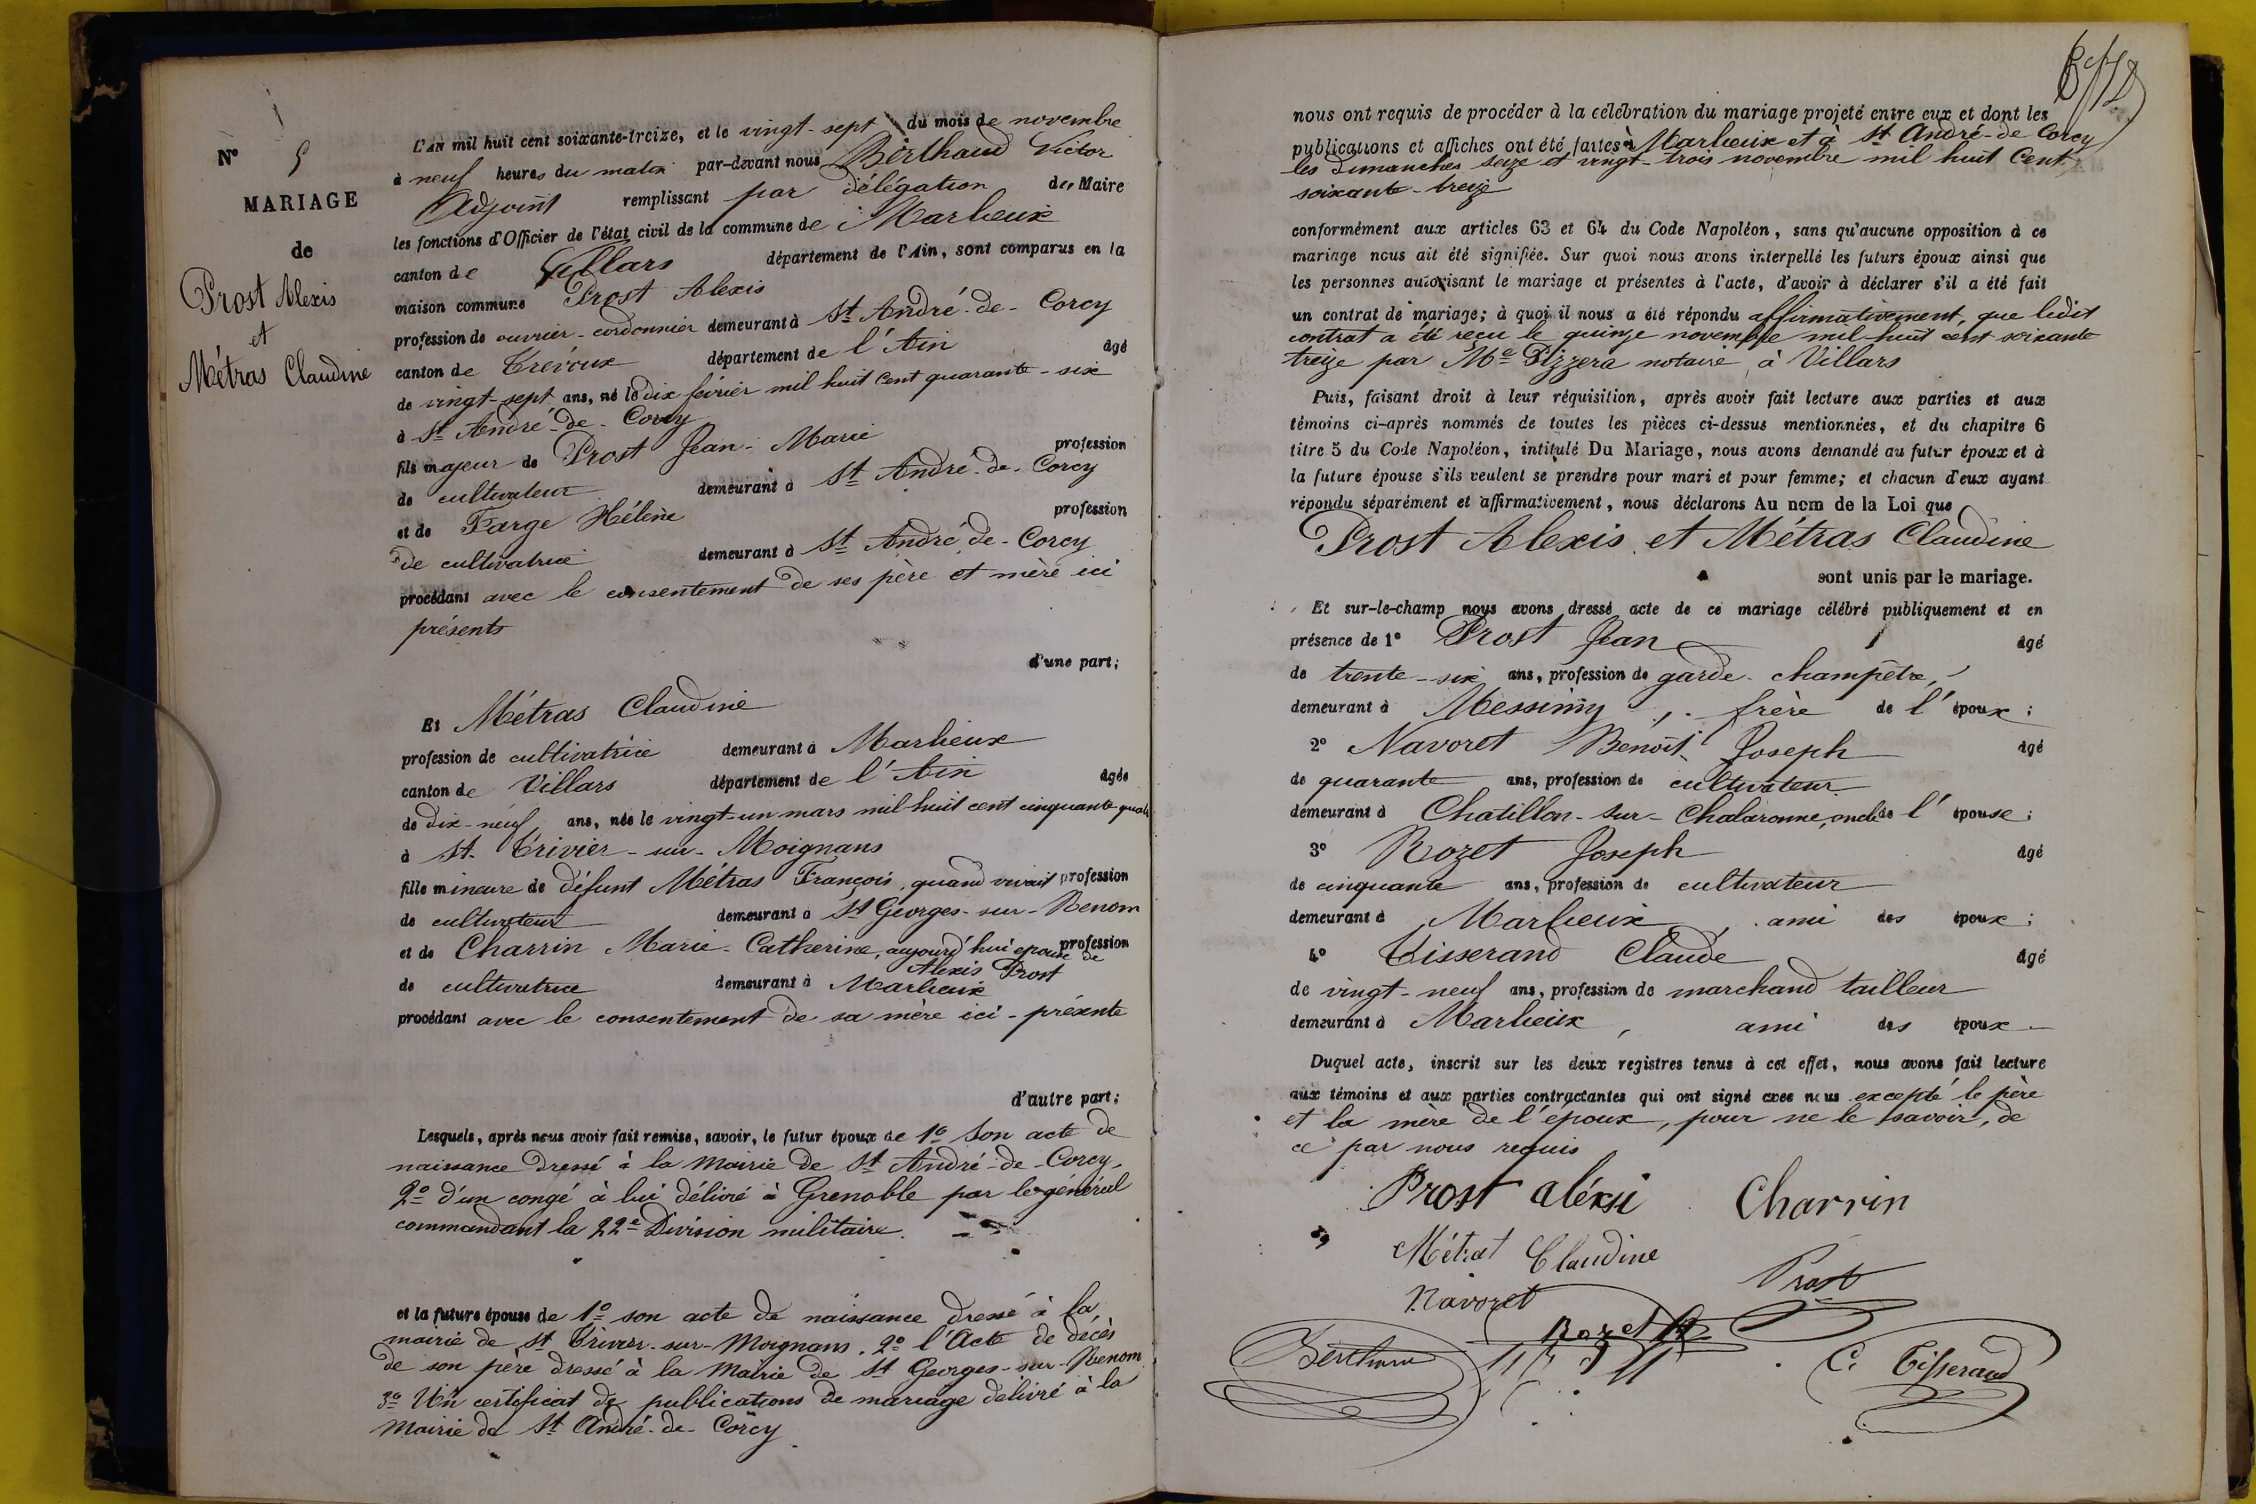 N° 5
MARIAGE
de
Prost Alexis
et
Métras Claudine
L'AN mil huit cent soixante-treize, et le vingt-sept du mois de novembre
à neuf heures du matin par-devant nous Berthaud Victor
Adjoint remplissant par délégation du Maire
les fonctions d'Officier de l'état civil de la commune de Marlieux
canton de Villars département de l'Ain, sont comparus en la
maison commune Prost Alexis
profession de ouvrier-cordonnier demeurant à St André-de-Corcy
canton de Trévoux département de l'Ain âgé
de vingt-sept ans, né le dix février mil huit cent quarante-six
à St André-de-Corcy
fils majeur de Prost Jean-Marie profession
de cultivateur demeurant à St André-de-Corcy
et de Farge Hélène profession
de cultivatrice demeurant à St André-de-Corcy
procédant avec le consentement de ses père et mère ici
présents
d'une part;
Et Métras Claudine
profession de cultivatrice demeurant à Marlieux
canton de Villars département de l'Ain âgée
de dix-neuf ans, née le vingt-un mars mil huit cent cinquante quatre
à St-Trivier-sur-Moignans
fille mineure de défunt Métras François, quand vivait profession
de cultivateur demeurant à St Georges-sur-Renom
et de Charrin Marie-Catherine, aujourd'hui épouse de profession
Alexis Prost
de cultivatrice demeurant à Marlieux
procédant avec le consentement de sa mère ici-présente
d'autre part;
Lesquels, après nous avoir fait remise, savoir, le futur époux de 1° Son acte de
naissance dressé à la Mairie de St André-de-Corcy,
2° d'un congé à lui délivré à Grenoble par le général
commandant la 22e Division militaire.
et la future épouse de 1° son acte de naissance dressé à la
mairie de St Trivier-sur-Moignans. 2° l'Acte de décès
de son père dressé à la Mairie de St Georges-sur-Renom
3° Un certificat de publications de mariage délivré à la
Mairie de St André-de-Corcy
nous ont requis de procéder à la célébration du mariage projeté entre eux et dont les
publications et affiches ont été faites à Marlieux et à St André-de Corcy
les dimanches seize et vingt-trois novembre mil huit Cent
soixante-treize
conformément aux articles 63 et 64 du Code Napoléon, sans qu'aucune opposition à ce
mariage nous ait été signifiée. Sur quoi nous avons interpellé les futurs époux ainsi que
les personnes autorisant le mariage et présentes à l'acte, d'avoir à déclarer s'il a été fait
un contrat de mariage; à quoi il nous a été répondu affirmativement, que ledit
contrat a été reçu le quinze novembre mil huit cent soixante
treize par Me Pizzera notaire à Villars
Puis, faisant droit à leur réquisition, après avoir fait lecture aux parties et aux
témoins ci-après nommés de toutes les pièces ci-dessus mentionnées, et du chapitre 6
titre 5 du Code Napoléon, intitulé Du Mariage, nous avons demandé au futur époux et à
la future épouse s'ils veulent se prendre pour mari et pour femme; et chacun d'eux ayant
répondu séparément et affirmativement, nous déclarons Au nom de la Loi que
Prost Alexis et Métras Claudine
sont unis par le mariage.
Et sur-le-champ nous avons dressé acte de ce mariage célébré publiquement et en
présence de 1° Prost Jean âgé
de trente-six ans, profession de garde-champêtre,
demeurant à Messimy, frère de l'époux;
2° Navoret Benoît Joseph âgé
de quarante ans, profession de cultivateur
demeurant à Chatillon-sur-Chalaronne, oncle de l'épouse;
3° Rozet Joseph âgé
de cinquante ans, profession de cultivateur
demeurant à Marlieux, ami des époux;
4° Tisserand Claude âgé
de vingt-neuf ans, profession de marchand tailleur
demeurant à Marlieux, ami des époux
Duquel acte, inscrit sur les deux registres tenus à cet effet, nous avons fait lecture
aux témoins et aux parties contractantes qui ont signé avec nous excepté le père
et la mère de l'époux, pour ne le savoir, de
ce par nous requis
Prost aléxsi Charrin
Métrat Claudine
Prost
Navoret
Rozet
Berthaud
C. Tisserand